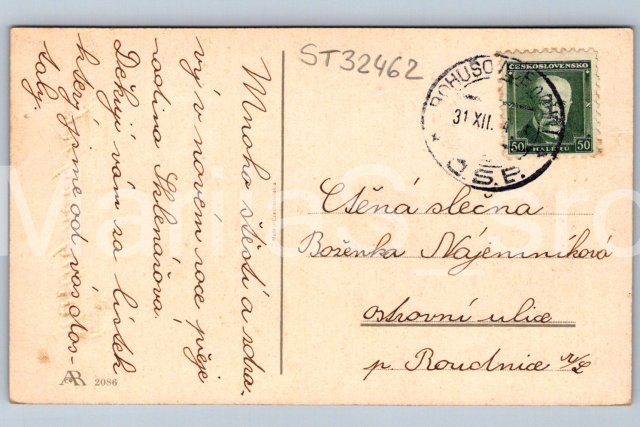 ST32462
Mnoho štěstí a zdra-
ví v novém roce přeje
rodina Sklenářova.
Děkuji vám za lístek
který jsme od vás dos-
taly.
2086
BOHUŠOVICE
31 XII.
Č.S.P.
ČESKOSLOVENSKO
50 HALÉŘŮ 50
Ctěná slečna
Boženka Nájemníková
ostrovní ulice
p. Roudnice n/L